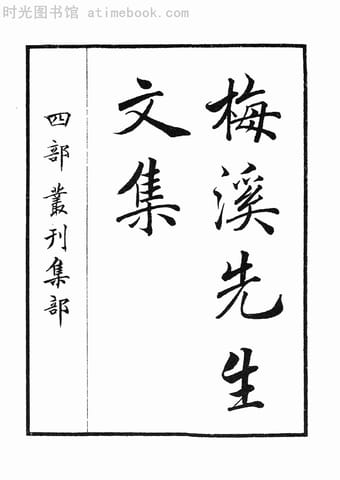 时光图书馆 - atimebook.com
梅溪先生
文集
四部叢刊集部